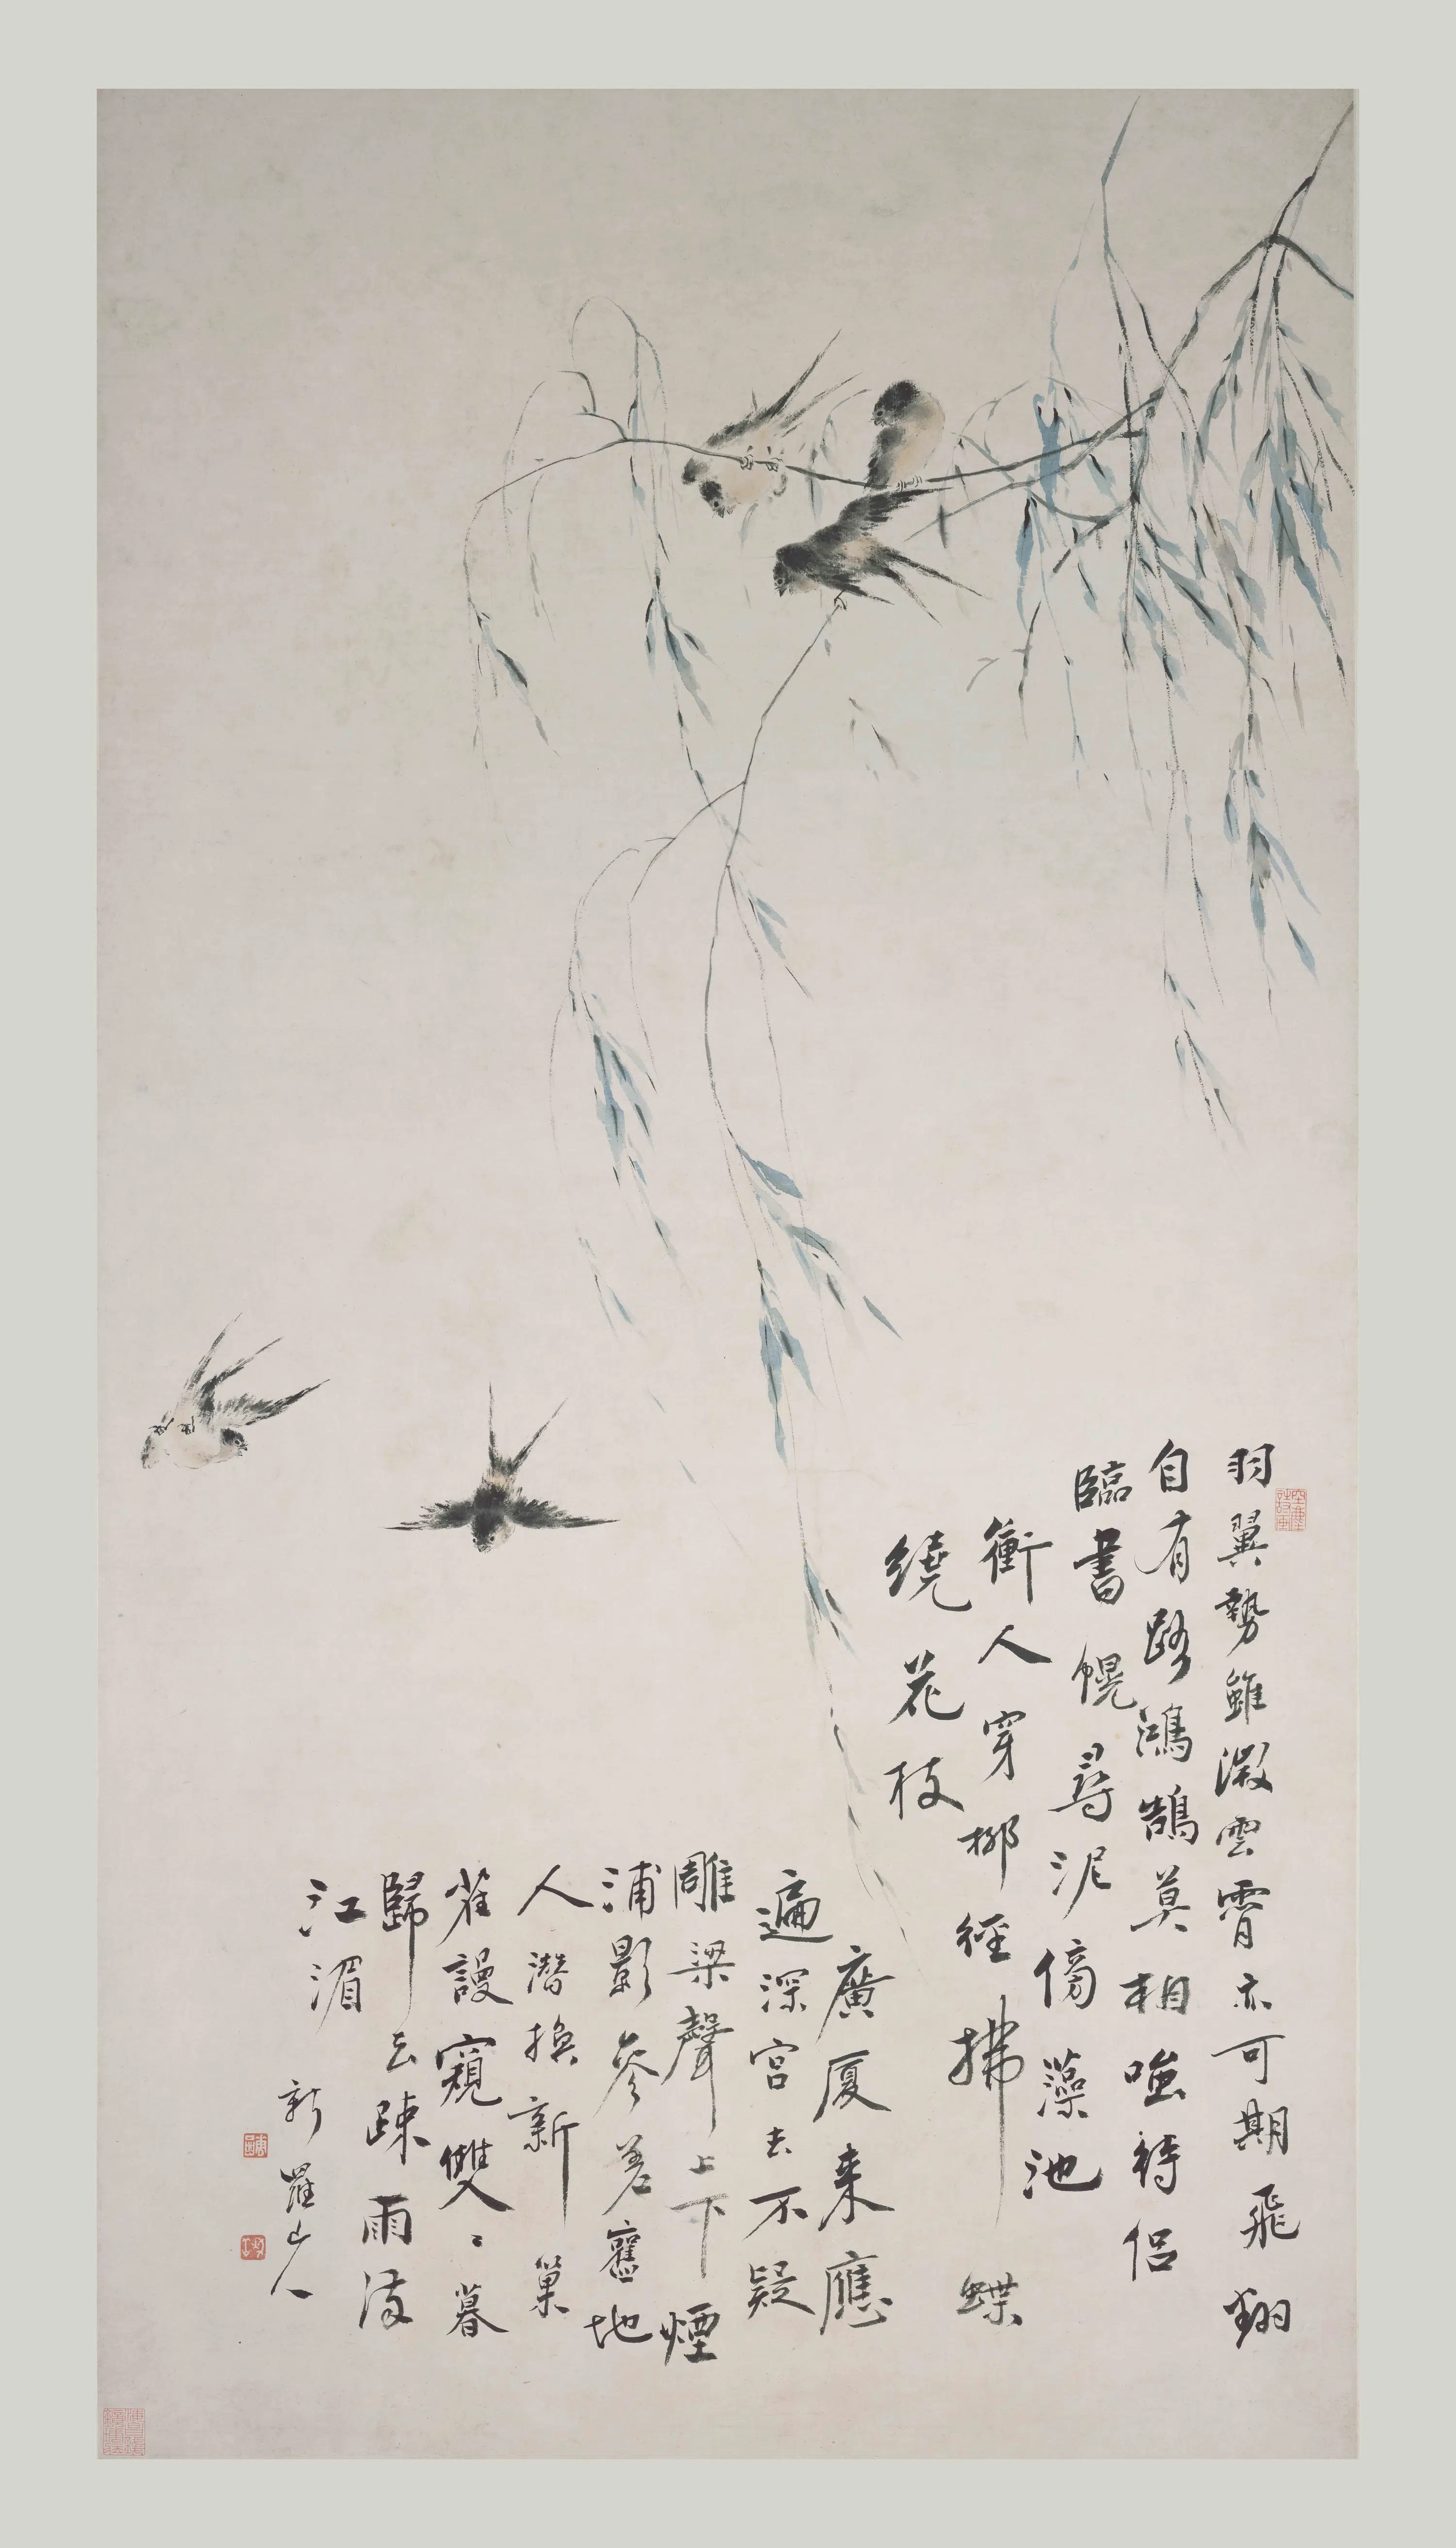 羽翼勢雖微雲霄亦可期飛翔
自有路鴻鵠莫相嗤待侶
臨書幌尋泥傍藻池
衝人穿柳徑拂蝶
繞花枝
廣厦来應
遍深宮去不疑
雕梁聲上下煙
浦影參差舊地
人潛換新巢
雀謾窺雙〻暮
歸去踈雨滿
江湄
新羅山人